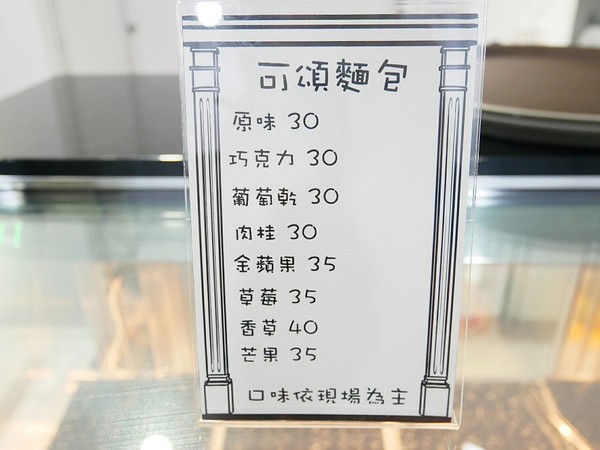 可頌麵包
原味 30
巧克力 30
葡萄乾 30
肉桂 30
金蘋果 35
草莓 35
香草 40
芒果 35
口味依現場為主